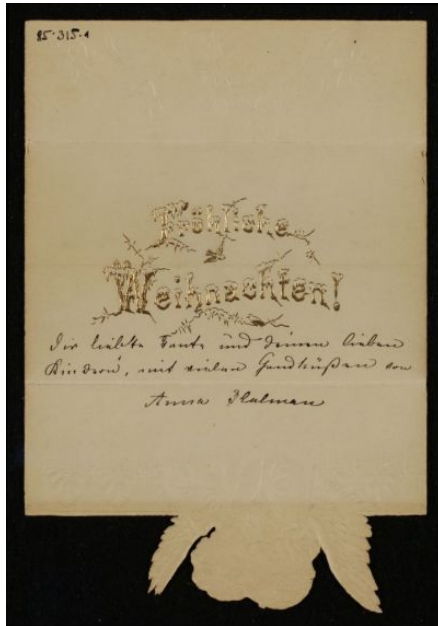 85·315·1
Fröhliche
Weihnachten!
Dir liebste Tante und Deinen lieben
Kindern, mit vielen Handküßen von
Anna